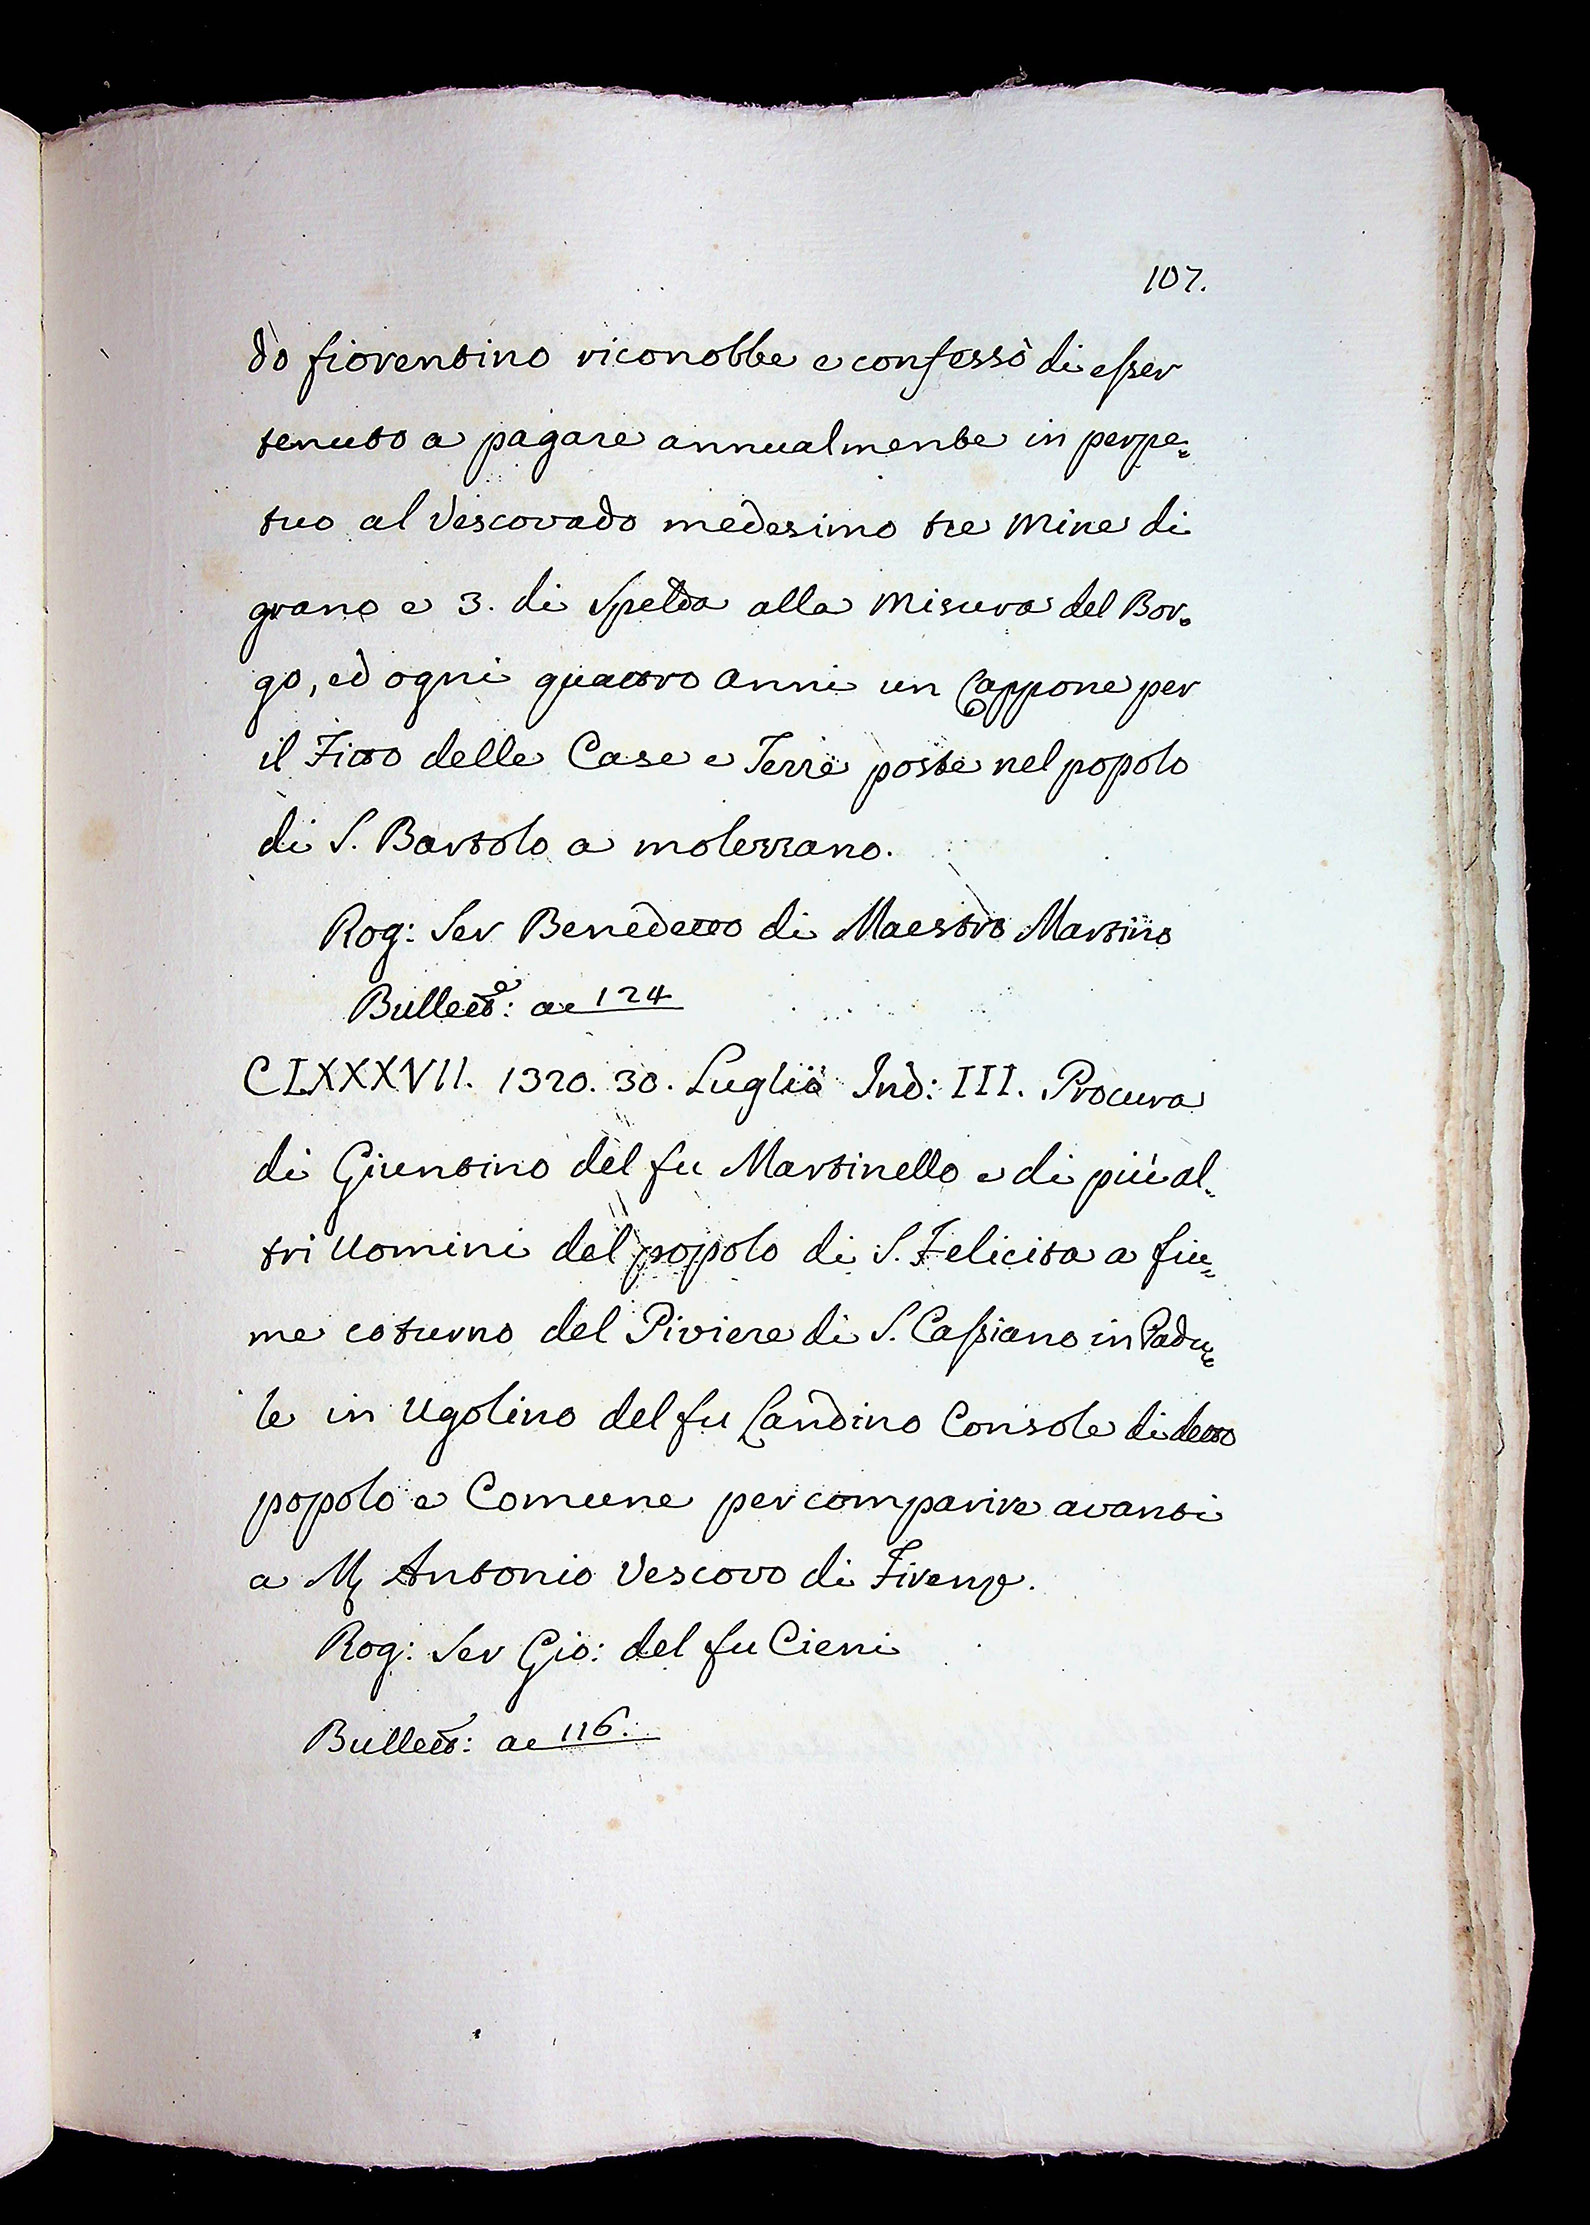 107.
do fiorentino riconobbe e confessò di esser
tenuto a pagare annualmente in perpe=
tuo al Vescovado medesimo tre Mine di
grano e 3. di Spelda alla Misura del Bor=
go, ed ogni quattro anni un Cappone per
il Fitto delle Case e Terre poste nel popolo
di S. Bartolo a molezzano.
Rog: Ser Benedetto di Maestro Martino
Bullett:ᵒ a c 124
CLXXXVII. 1320. 30. Luglio Ind: III. Procura
di Giuntino del fu Martinello e di più al=
tri Uomini del popolo di S. Felicita a fiu=
me coturno del Piviere di S. Cassiano in Padu=
le in Ugolino del fu Landino Console di detto
popolo e Comune per comparire avanti
a M. Antonio Vescovo di Firenze.
Rog: Ser Gio: del fu Cieni
Bullett: a c 116.